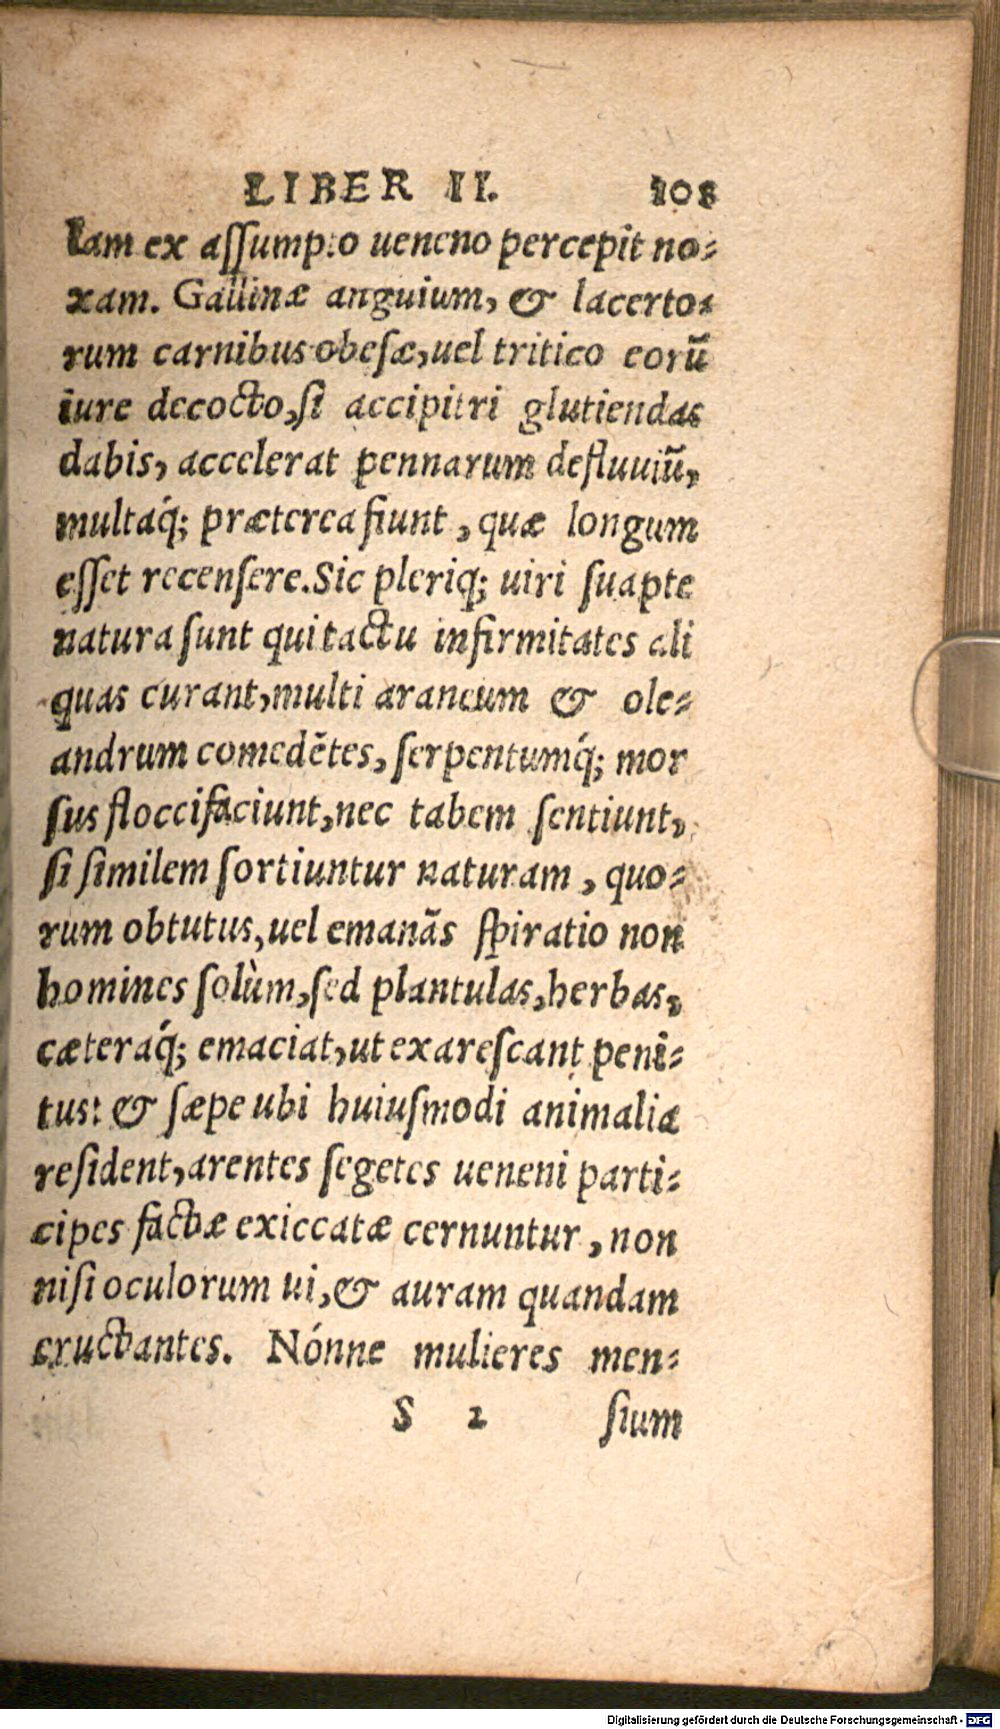 LIBER II. 108
lam ex aſſumpto ueneno percepit no-
xam. Gallinæ anguium, & lacerto-
rum carnibus obeſæ, uel tritico eorũ
iure decocto, ſi accipitri glutiendas
dabis, accelerat pennarum defluuiũ,
multaq́; præterea fiunt, quæ longum
eſſet recenſere. Sic pleriq; uiri ſuapte
natura ſunt qui tactu infirmitates ali
quas curant, multi araneum & ole-
andrum comedẽtes, ſerpentumq́; mor
ſus floccifaciunt, nec tabem ſentiunt,
ſi ſimilem ſortiuntur naturam, quo-
rum obtutus, uel emanãs ſpiratio non
homines ſolùm, ſed plantulas, herbas,
cæteraq́; emaciat, ut exareſcant peni-
tus: & ſæpe ubi huiuſmodi animalia
reſident, arentes ſegetes ueneni parti-
cipes factæ exiccatæ cernuntur, non
niſi oculorum ui, & auram quandam
eructantes. Nónne mulieres men-
S 2 ſium
Digitalisierung gefördert durch die Deutsche Forschungsgemeinschaft - DFG